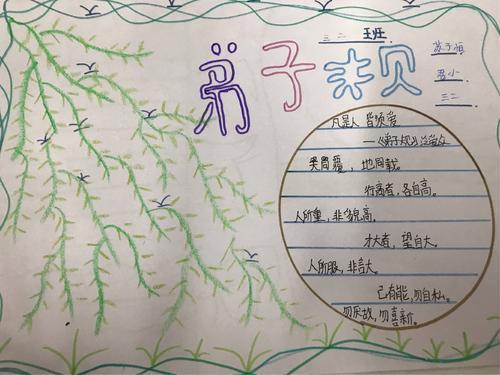 弟子规
三二班
苏子恒
君小
三二
凡是人 皆须爱
——《弟子规》
天同覆，地同载。
行高者，名自高。
人所重，非貌高。
才大者，望自大。
人所服，非言大。
己有能，勿自私。
勿厌故，勿喜新。